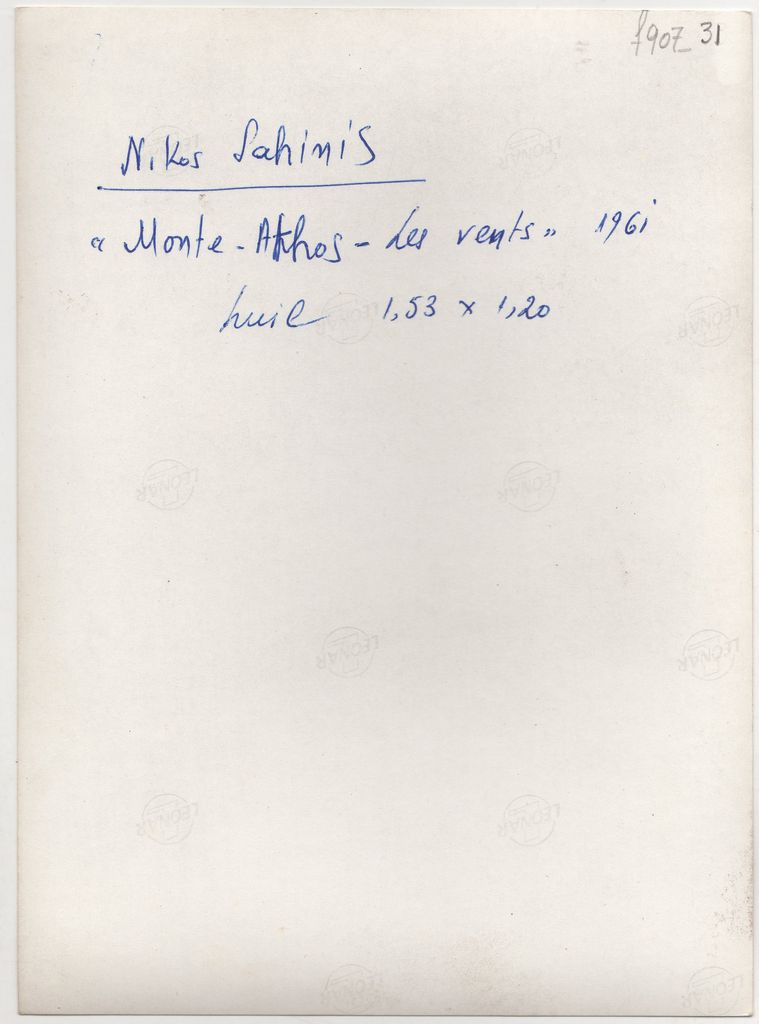 f907_31
Nikos Sahinis
« Monte - Athos - Les vents » 1961
huile 1,53 x 1,20
LEONAR
LEONAR
LEONAR
LEONAR
LEONAR
LEONAR
LEONAR
LEONAR
LEONAR